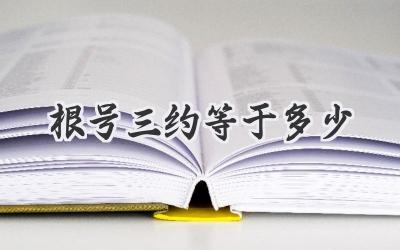 根号三约等于多少